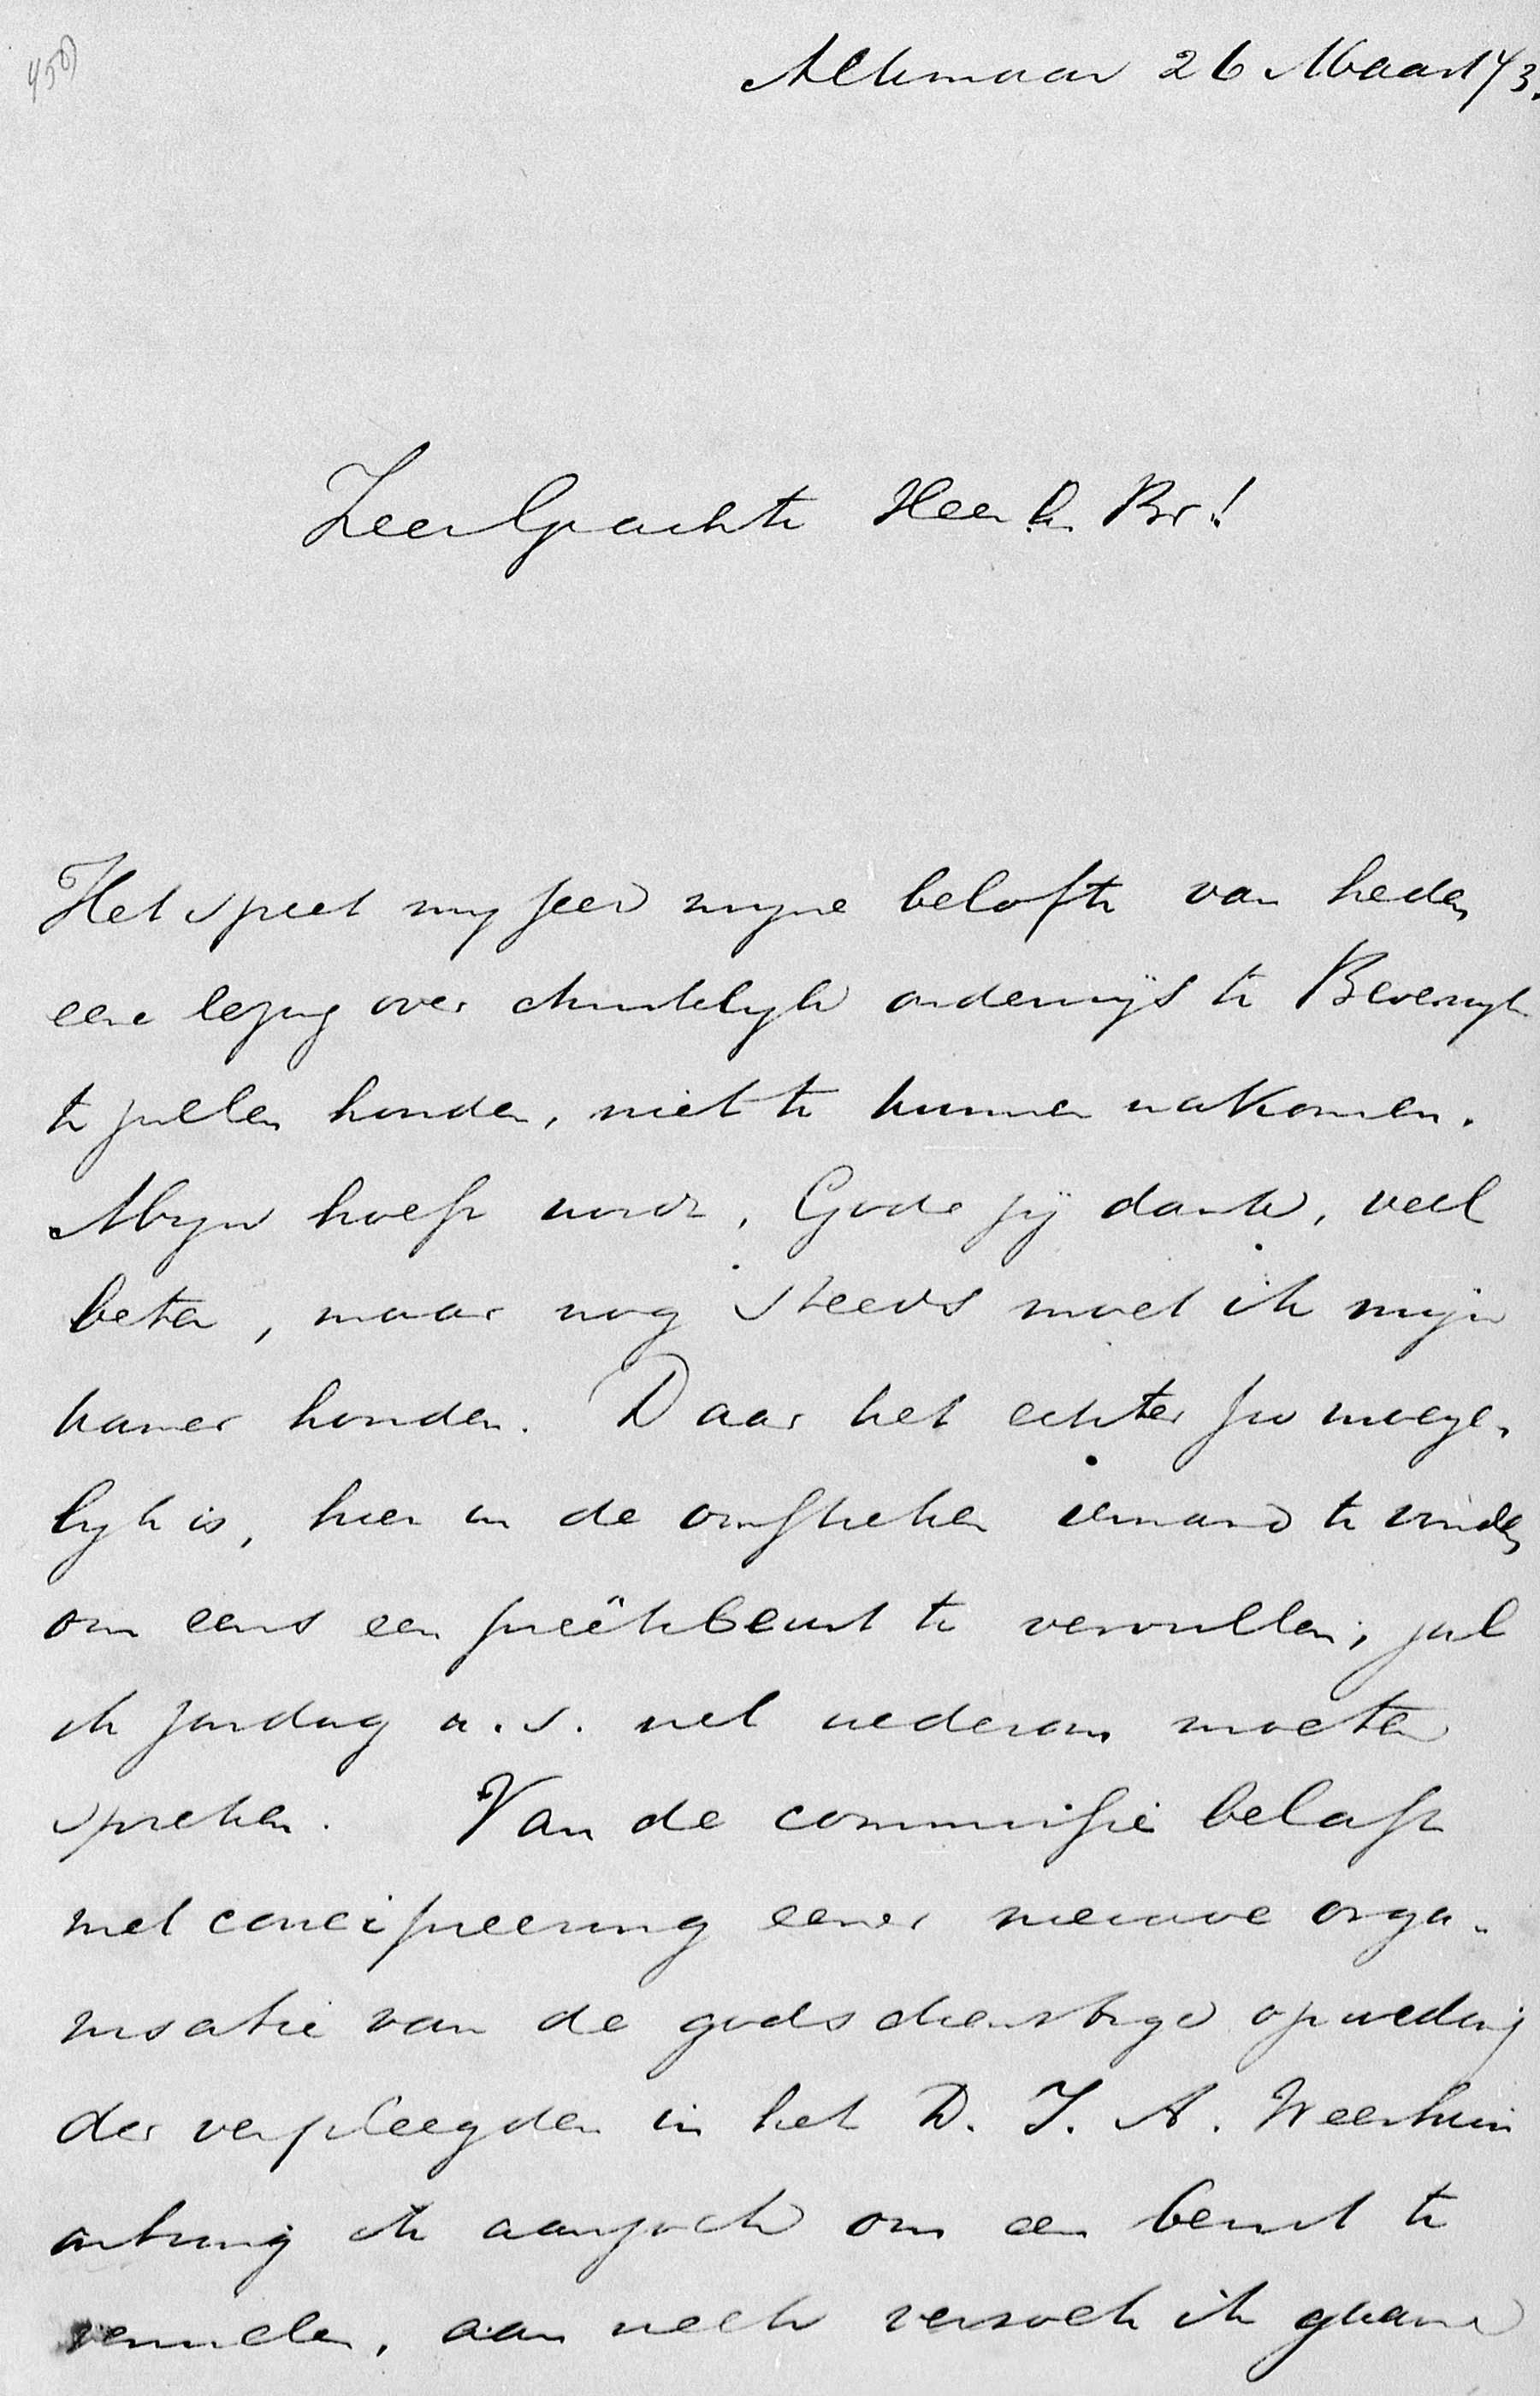 450
Alkmaar 26 Maart 73.
Zeer Geachte Heer & Br!
Het speet my zeer myne belofte van heden
eene lezing over christelyk onderwijs te Beverwyk
te zullen houden, niet te kunnen nakomen.
Myn hoest wordt, Gode zij dank, veel
beter, maar nog steeds moet ik mijn
kamer houden. Daar het echter zoo moeye-
lyk is, hier in de omstreken iemand te vinden
om eens een preêkbeurt te vervullen, zal
ik zondag a.s. wel wederom moeten
spreken. Van de commissie belast
met concipieering eener nieuwe orga-
nisatie van de godsdienstige opleiding
der verpleegden in het D. I. A. Weeshuis
ontving ik aanzoek om een beurt te
vervullen, aan welk verzoek ik gaarne